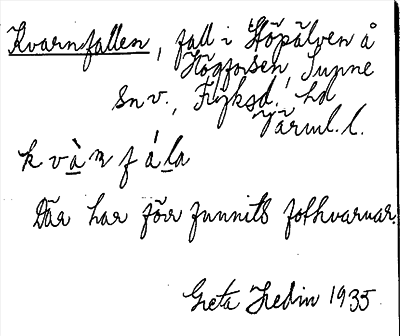 Kvarnfallen, fall i Höpälven å
Högforsen, Sunne
sn v., Fryksd. hd
Värml. l.
kvàn fála
Där har förr funnits fotkvarnar.
Greta Hedin 1935.